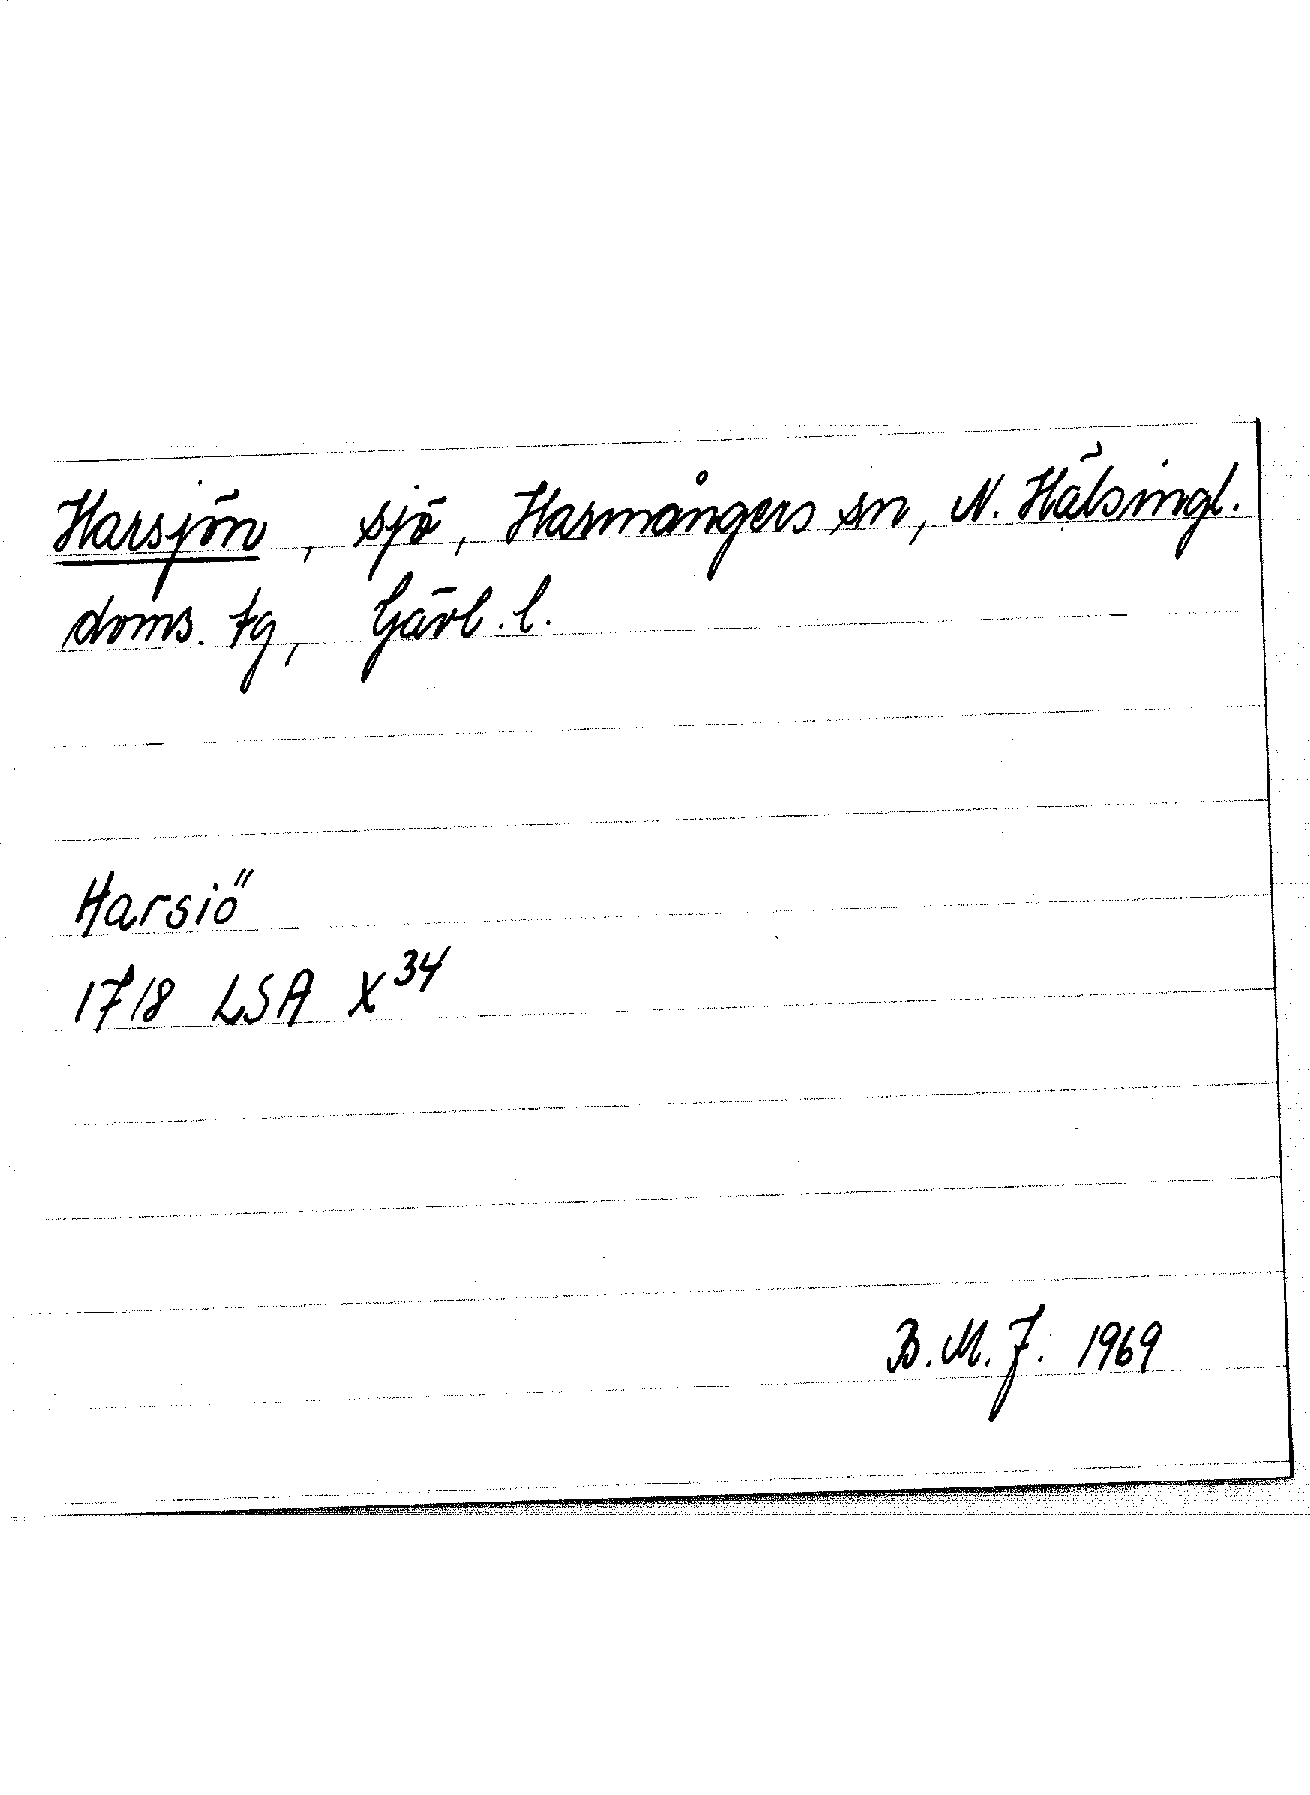 Harsjön, sjö, Harmångers sn, N. Hälsingl.
doms. tg, Gävl. l.
Harsiö
1718 LSA X34
B.M.J. 1969